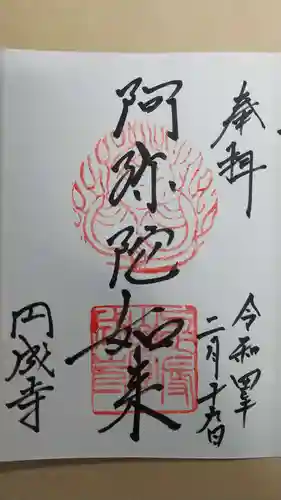 奉拝
令和四年
二月十九日
阿弥陀如来
円成寺